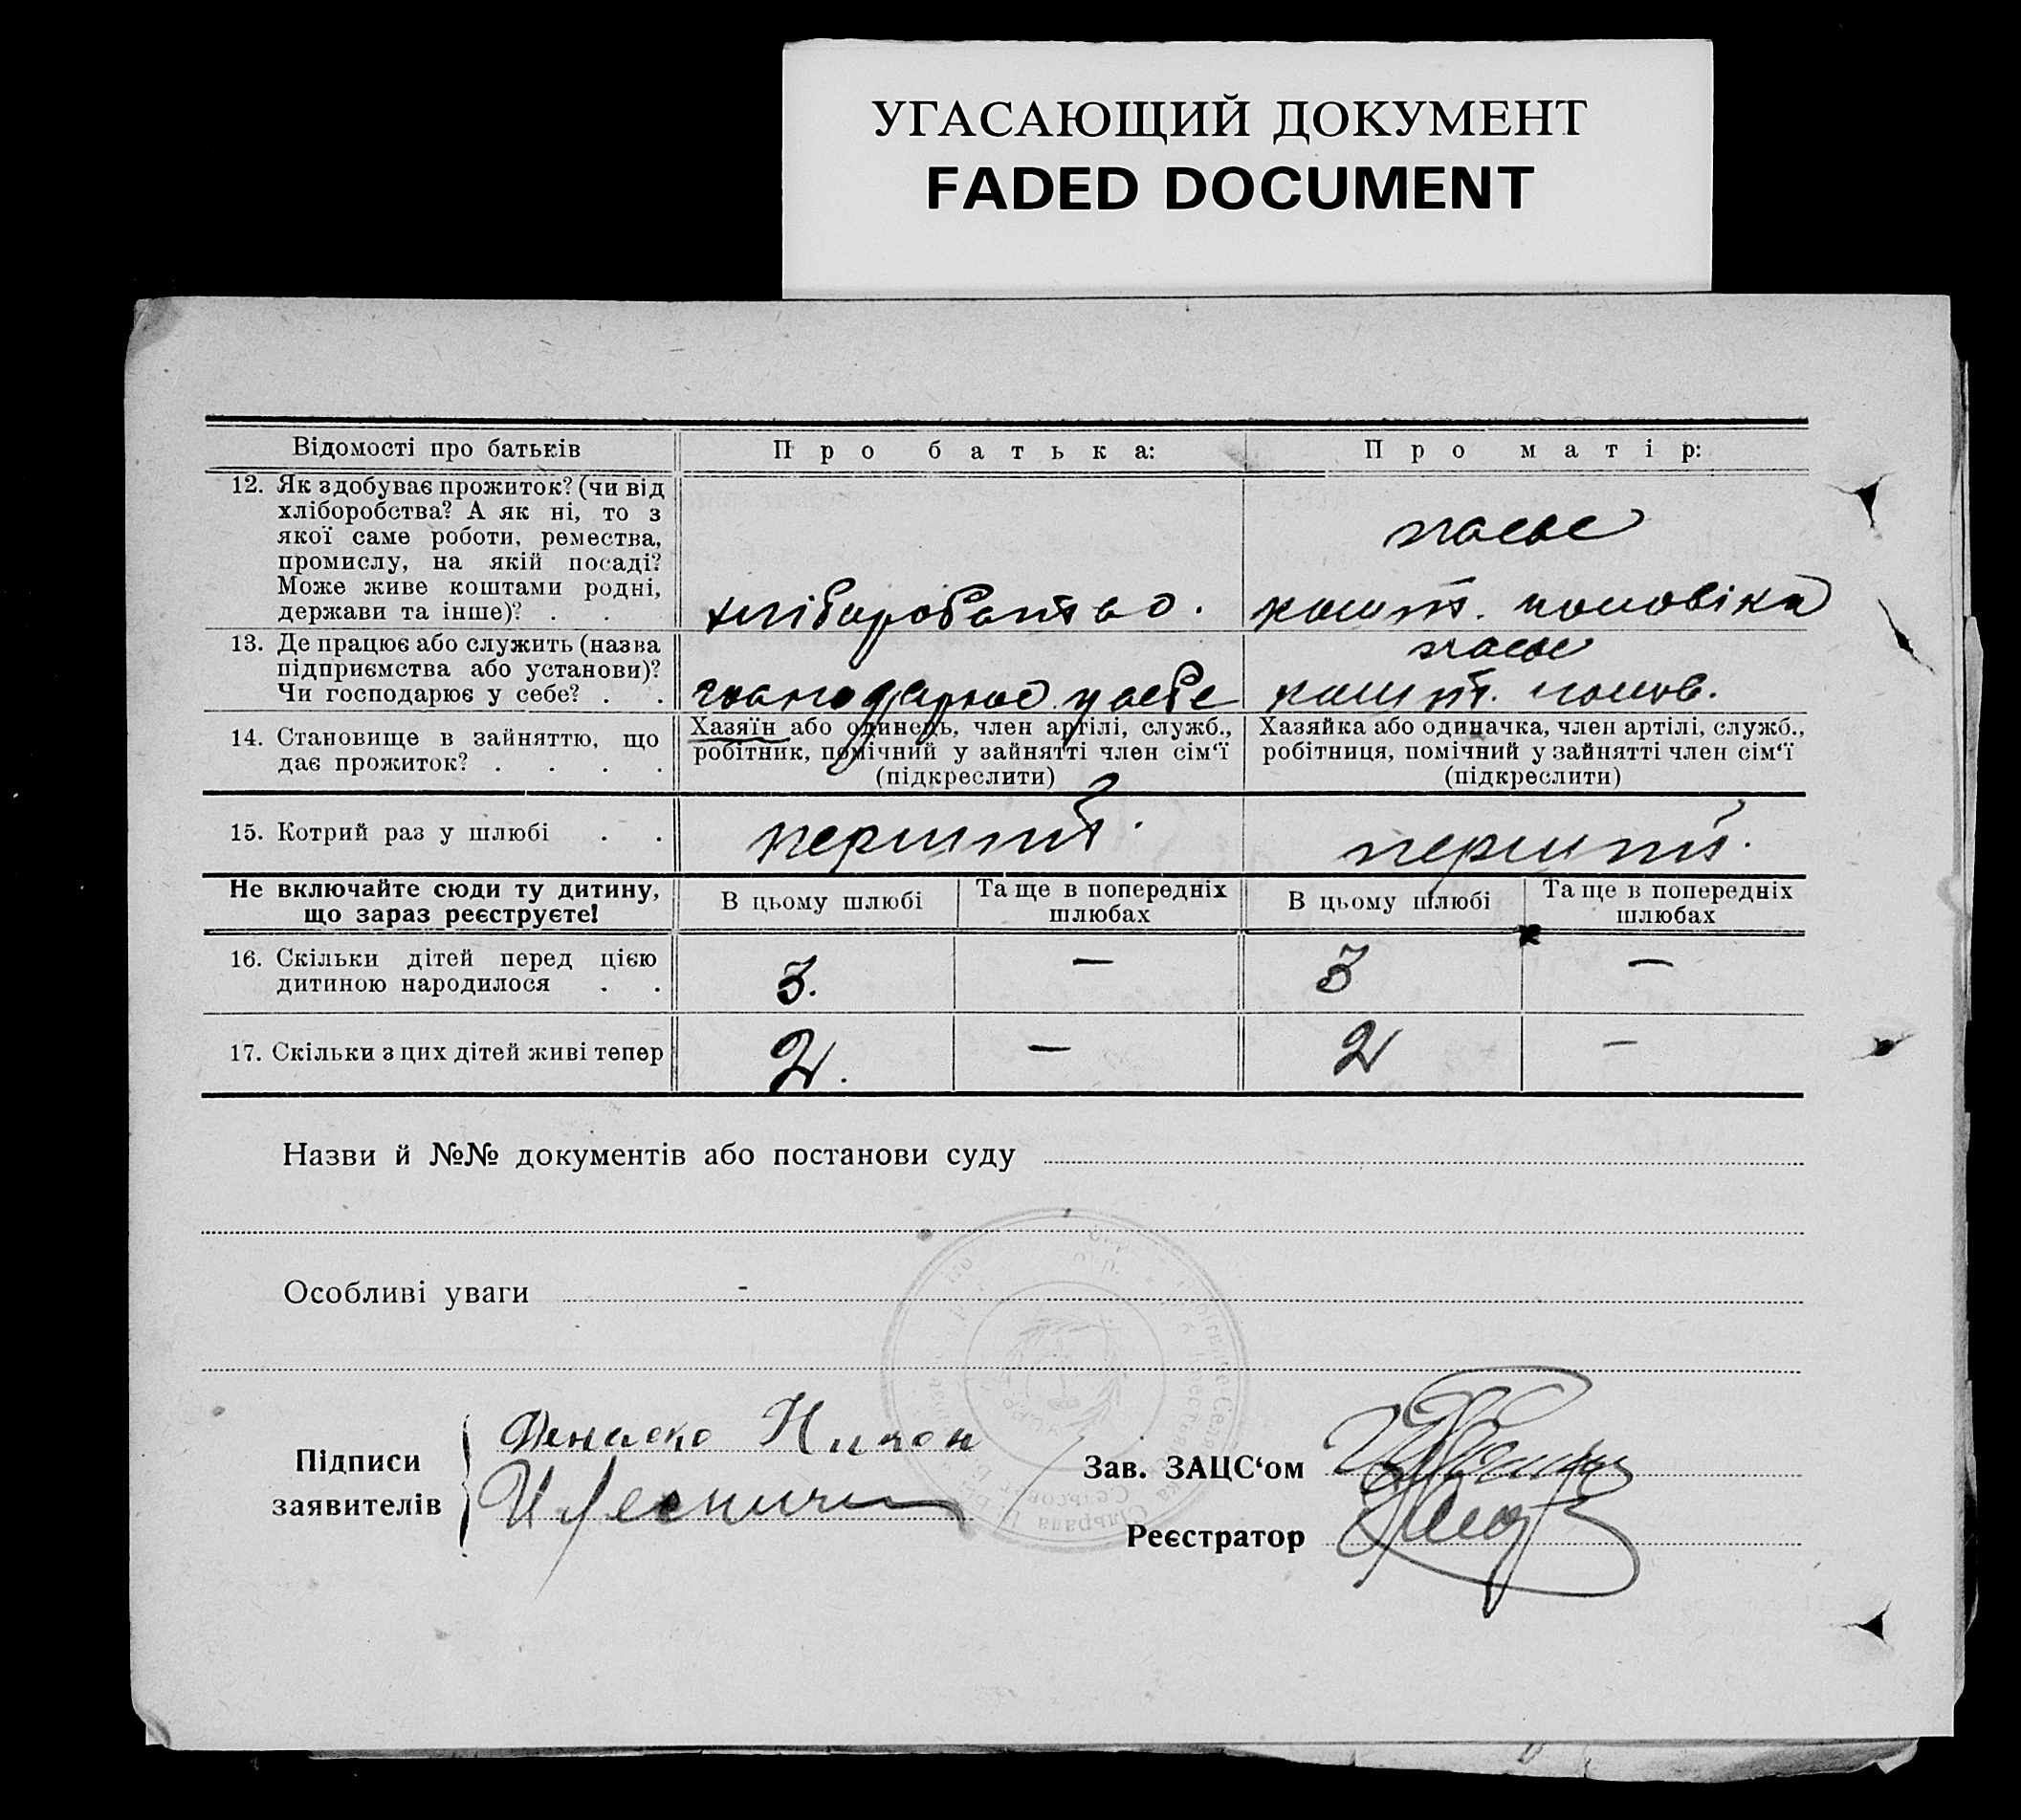 УГАСАЮЩИЙ ДОКУМЕНТ
FADED DOCUMENT
Відомості про батьків
Про батька:
Про матір:
12. Як здобуває прожиток? (чи від
хліборобства? А як ні, то з
якої саме роботи, ремества,
промислу, на якій посаді?
Може живе коштами родні,
держави та інше)? . .
хліборобство.
кошт. чоловіка
13. Де працює або служить (назва
підприємства або установи)?
Чи господарює у себе? . .
господарює у себе
кошт. чолов.
14. Становище в зайняттю, що
дає прожиток? . . . .
Хазяїн або одинець, член артілі, служб.,
робітник, помічний у зайнятті член сім‘ї
(підкреслити)
Хазяйка або одиначка, член артілі, служб.,
робітниця, помічний у зайнятті член сім‘ї
(підкреслити)
15. Котрий раз у шлюбі . .
Не включайте сюди ту дитину,
що зараз реєструєте!
В цьому шлюбі
Та ще в попередніх
шлюбах
В цьому шлюбі
Та ще в попередніх
шлюбах
16. Скільки дітей перед цією
дитиною народилося . .
3. — 3 —
17. Скільки з цих дітей живі тепер
2. — 2 —
Назви й №№ документів або постанови суду
Особливі уваги -
Підписи
заявителів
Никон
Зав. ЗАЦС‘ом
Реєстратор